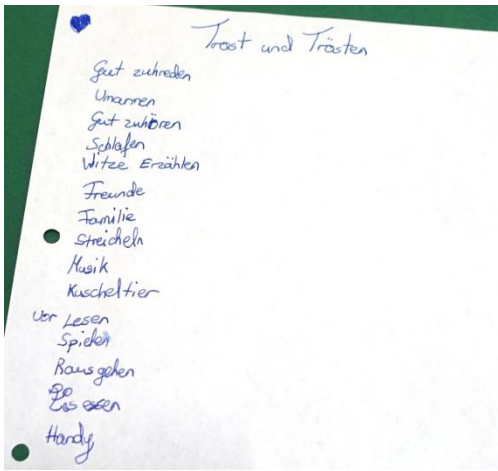 Trost und Trösten
Gut zuhreden
Umarmen
Gut zuhören
Schlafen
Witze Erzählen
Freunde
Familie
Streicheln
Musik
Kuscheltier
Vor Lesen
Spielen
Rausgehen
Eis essen
Handy